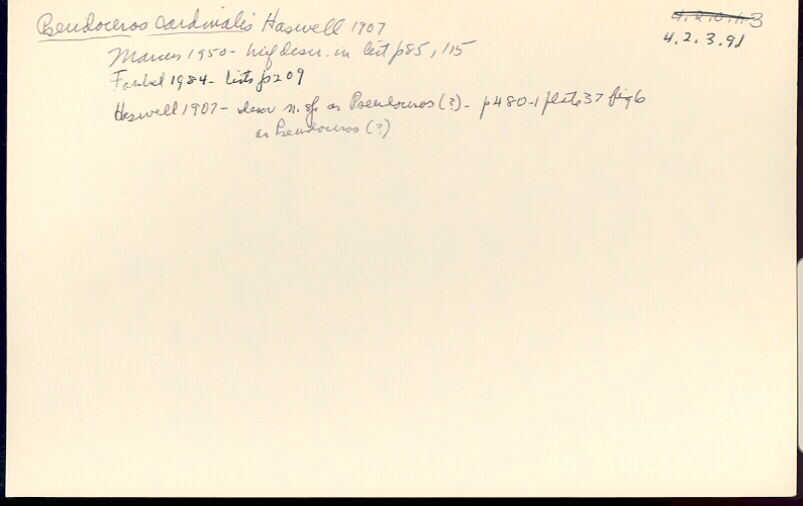 Pseudoceros cardinalis Haswell 1907
4.2.0.13
4.2.3.91
Marcus 1950 - brief descr. in list p85, 115
Faubel 1984 - lists p209
Haswell 1907 - descr n. sp. as Pseudoceros (?) - p480-1 plate 37 fig 6
as Pseudoceros (?)